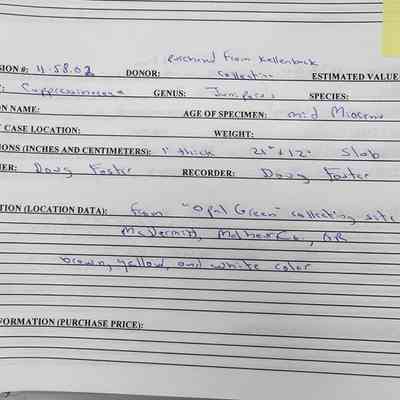 purchased From Kellenback
SION #: 11.58.02 DONOR: Collection ESTIMATED VALUE
: Cuppressinoceae GENUS: Juniperus SPECIES:
ON NAME: AGE OF SPECIMEN: mid Miocene
CASE LOCATION: WEIGHT:
IONS (INCHES AND CENTIMETERS): 1" thick 21" x 12" Slab
NER: Doug Foster RECORDER: Doug Foster
TION (LOCATION DATA): From "Opal Green" collecting site
McDermitt, Malheur Co., OR
brown, yellow, and white color
FORMATION (PURCHASE PRICE):